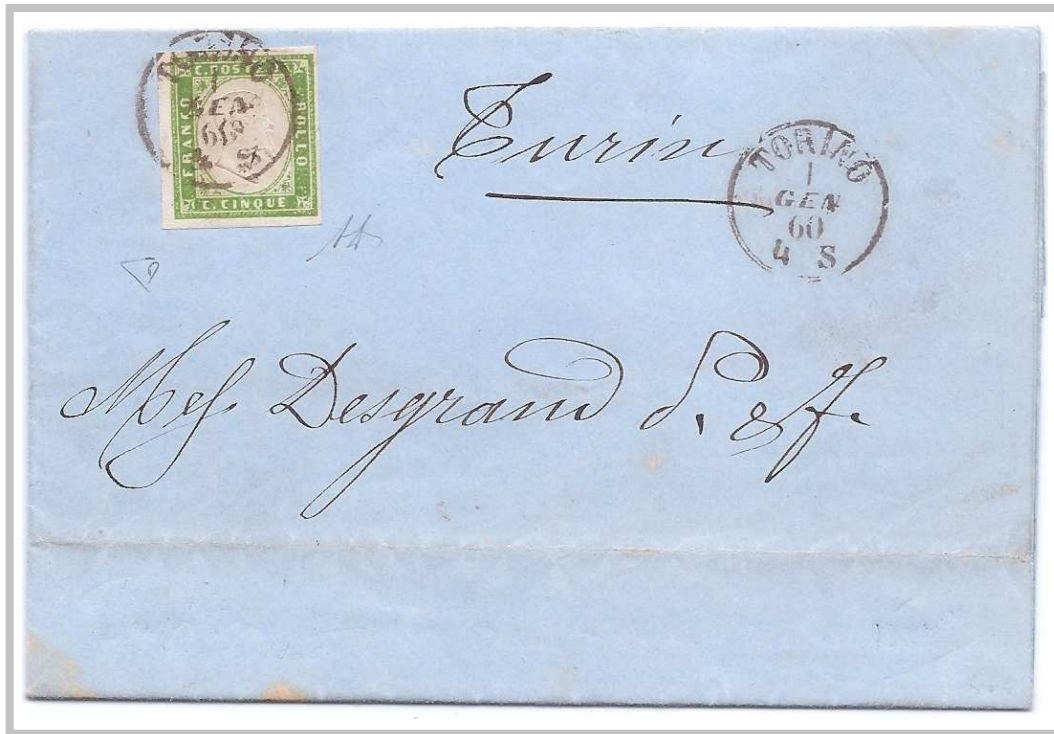 C. POSTE
FRANCO
BOLLO
C. CINQUE
TORINO
1
GEN
60
4 S
Turin
TORINO
1
GEN
60
4 S
Mess Desgrand P. & f.